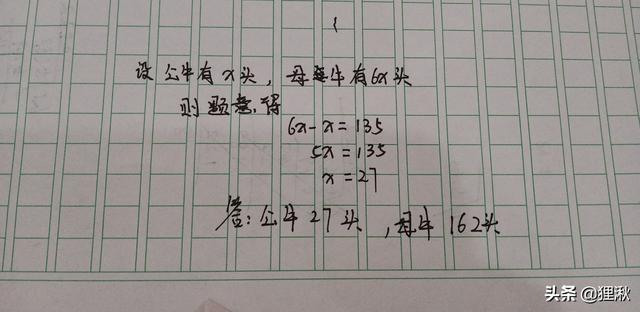 设公牛有x头，母牛有6x头
则题意，得
6x-x=135
5x=135
x=27
答：公牛27头，母牛162头
头条 @狸湫